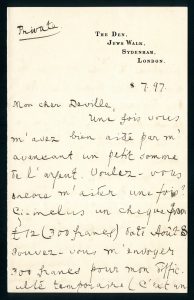 Private
THE DEN,
JEWS WALK,
SYDENHAM,
LONDON.
8 7. 97.
Mon cher Deville,
Une fois vous
m'avez bien aidé par m'
avancant un petit somme
de l'argent. Voulez-vous
encore m'aider une fois?
Ci-inclus un cheque
£12 (300 francs) daté Août 8
Pouvez-vous m'envoyer
300 francs pour mon diffi-
culté temporaire (C'est un